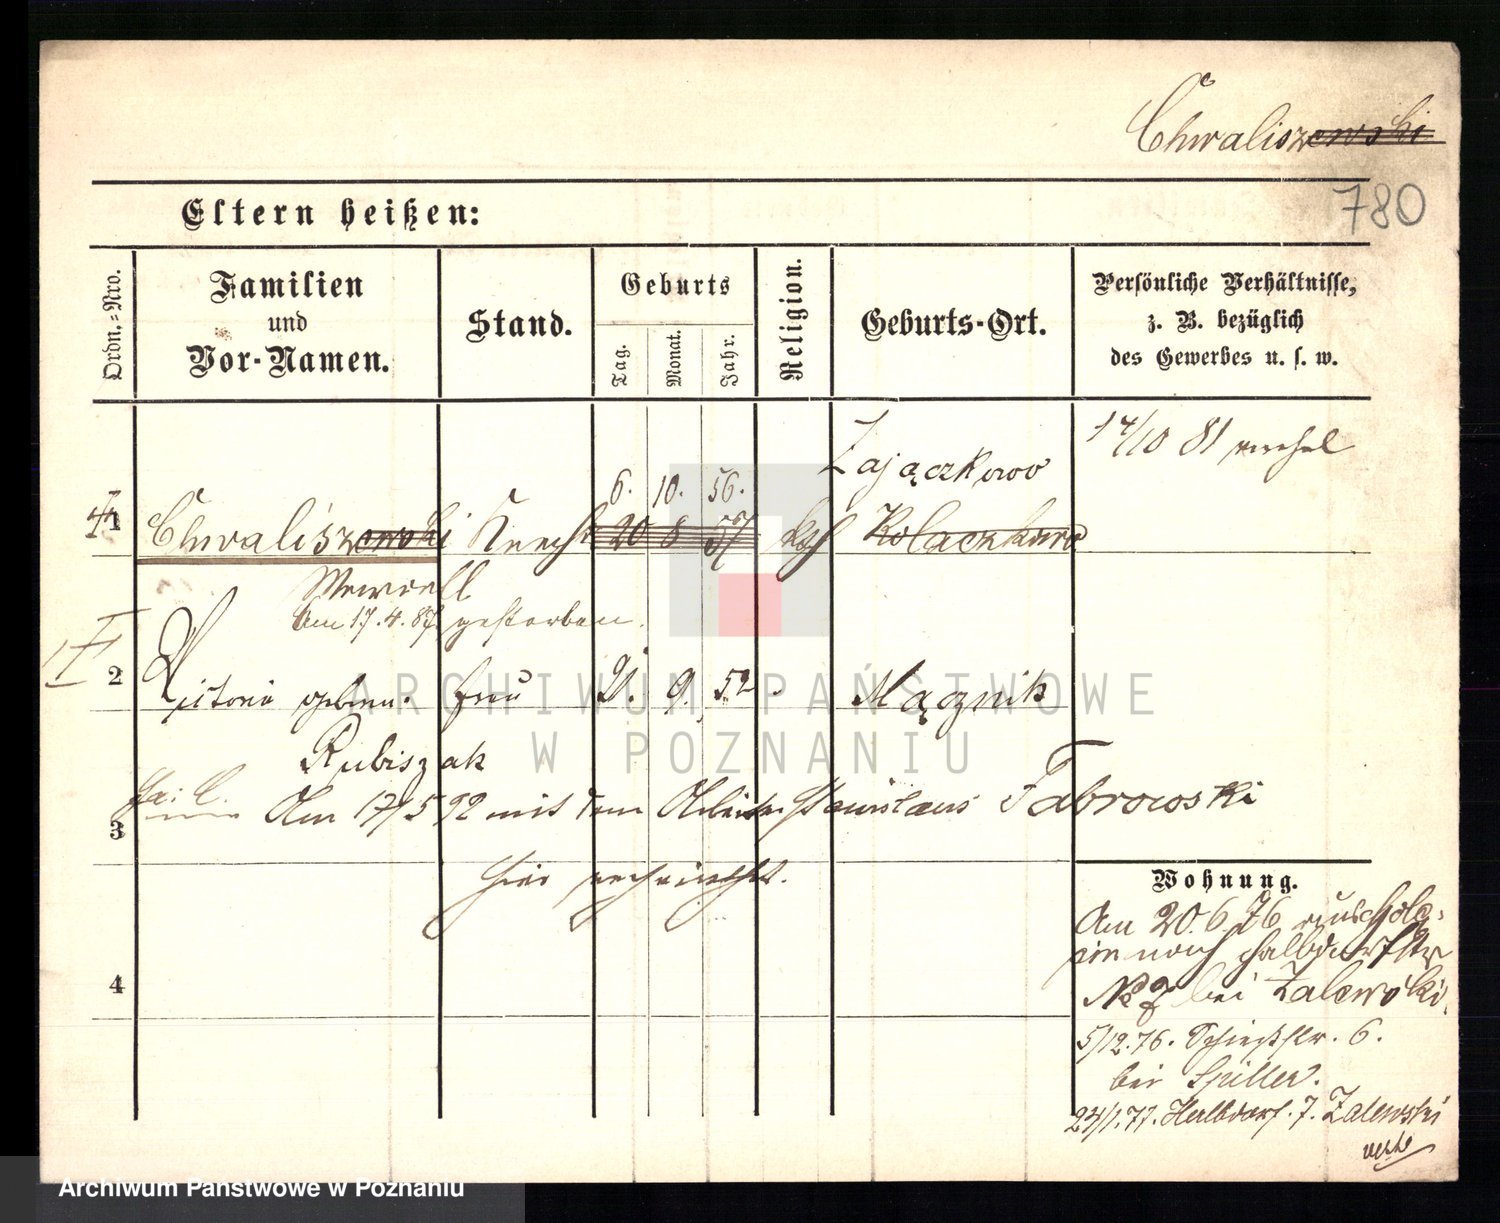 Chwaliszewski
780
Eltern heißen:
Ordn.-Nro.
Familien
und
Vor-Namen.
Stand.
Geburts
Tag.
Monat.
Jahr.
Religion.
Geburts-Ort.
Persönliche Verhältnisse,
z. B. bezüglich
des Gewerbes u. s. w.
17/10 81
Zajączkowo
6. 10. 56.
1 Chwaliszewski Knecht 20 8 57 kth Kolaczkowo
Am 17.4.87 gestorben.
2 Victoria geboren Frau 21. 9. 52. Mącznik
Rubiszak
3 Am 17/5 92 mit dem Arbeiter Stanislaus Fabrowski
hier verheirathet.
Wohnung.
Am 20.6.76
nach Halbdorfstr
No 7 bei Zalewski.
4
5/12.76. Schießstr. 6.
bei Spiller.
23/1.77. Halbdorf. 7. Zalewski
ARCHIWUM PAŃSTWOWE
W POZNANIU
Archiwum Państwowe w Poznaniu